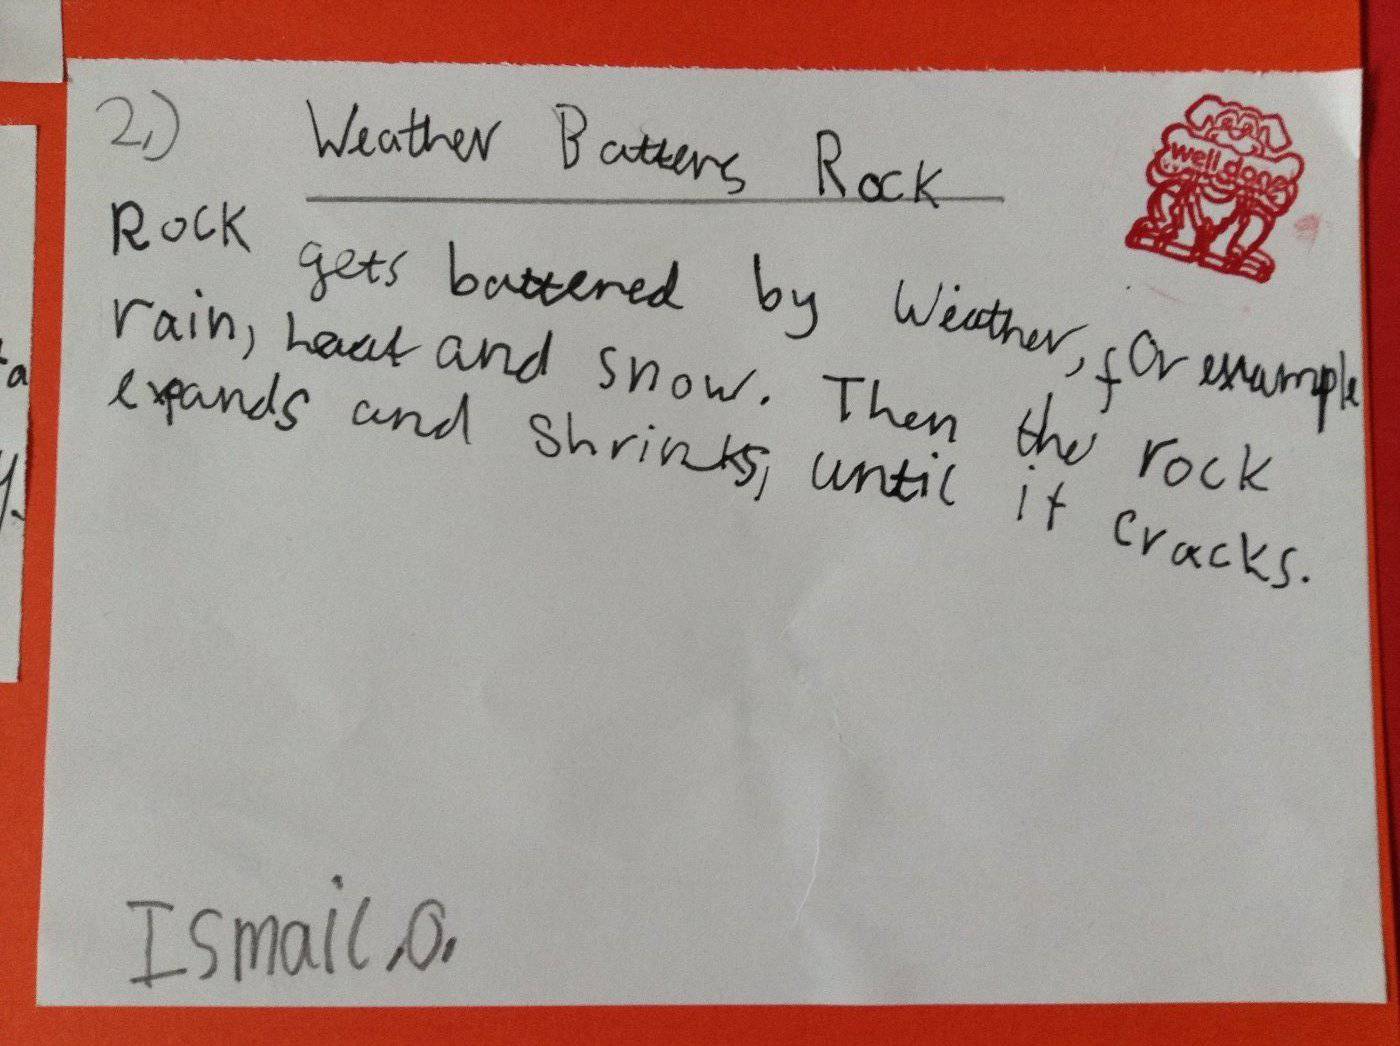 2.) Weather Batters Rock
well done
Rock gets battered by Weather, for example
rain, heat and snow. Then the rock
expands and shrinks, until it cracks.
Ismail.O.